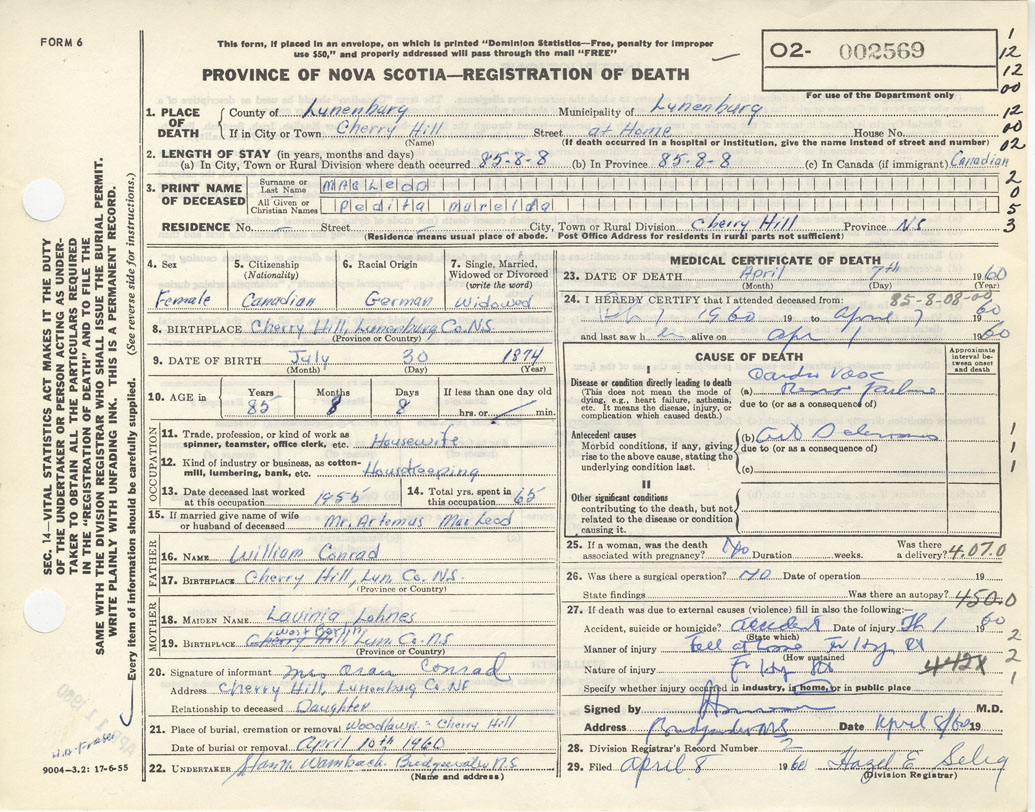 FORM 6
This form, if placed in an envelope, on which is printed "Dominion Statistics—Free, penalty for improper
use $50," and properly addressed will pass through the mail "FREE"
PROVINCE OF NOVA SCOTIA—REGISTRATION OF DEATH
O2- 002569
For use of the Department only
1 12 12 00 12 00 02 2 0 5 3
1. PLACE OF DEATH
County of Lunenburg Municipality of Lunenburg
If in City or Town Cherry Hill Street at Home House No.
(Name) (If death occurred in a hospital or institution, give the name instead of street and number)
2. LENGTH OF STAY (in years, months and days)
(a) In City, Town or Rural Division where death occurred 85-8-8 (b) In Province 85-8-8 (c) In Canada (if immigrant) Canadian
3. PRINT NAME OF DECEASED
Surname or Last Name MacLeod
All Given or Christian Names Pedita Murelda
RESIDENCE No. — Street — City, Town or Rural Division Cherry Hill Province NS
(Residence means usual place of abode. Post Office Address for residents in rural parts not sufficient)
4. Sex
Female
5. Citizenship
(Nationality)
Canadian
6. Racial Origin
German
7. Single, Married, Widowed or Divorced
(write the word)
Widowed
8. BIRTHPLACE Cherry Hill, Lunenburg Co. N.S.
(Province or Country)
9. DATE OF BIRTH July 30 1874
(Month) (Day) (Year)
10. AGE in
Years 85
Months 8
Days 8
If less than one day
hrs. or min.
OCCUPATION
11. Trade, profession, or kind of work as
spinner, teamster, office clerk, etc. Housewife
12. Kind of industry or business, as cotton-
mill, lumbering, bank, etc. Housekeeping
13. Date deceased last worked
at this occupation 1955
14. Total yrs. spent in
this occupation 65
15. If married give name of wife
or husband of deceased Mr. Artemus MacLeod
FATHER
16. NAME William Conrad
17. BIRTHPLACE Cherry Hill, Lun. Co. N.S.
(Province or Country)
MOTHER
18. MAIDEN NAME Lavinia Lohnes
West Berlin
19. BIRTHPLACE Cherry Hill Lun. Co. N.S
(Province or Country)
20. Signature of informant Mrs Conrad
Address Cherry Hill, Lunenburg Co. NS
Relationship to deceased Daughter
21. Place of burial, cremation or removal Woodlawn - Cherry Hill
Date of burial or removal April 10th 1960
22. UNDERTAKER Wambach Bridgewater N.S
(Name and address)
MEDICAL CERTIFICATE OF DEATH
23. DATE OF DEATH April 7th 1960
(Month) (Day) (Year)
85-8-08-00
24. I HEREBY CERTIFY that I attended deceased from:
1960 19 to April 7 60
and last saw h er alive on apr 1 60
CAUSE OF DEATH
Approximate interval between onset and death
I
Disease or condition directly leading to death
(This does not mean the mode of
dying, e.g., heart failure, asthenia,
etc. It means the disease, injury, or
complication which caused death.)
(a) Cardio Vasc
Renal Failure
due to (or as a consequence of)
Antecedent causes
Morbid conditions, if any, giving
rise to the above cause, stating the
underlying condition last.
(b)
due to (or as a consequence of)
(c)
1
1
1
II
Other significant conditions
contributing to the death, but not
related to the disease or condition
causing it.
25. If a woman, was the death
associated with pregnancy? No Duration weeks. Was there
a delivery? 4.07.0
26. Was there a surgical operation? no Date of operation 19
State findings Was there an autopsy? 450.0
27. If death was due to external causes (violence) fill in also the following:—
Accident, suicide or homicide? accident Date of injury 1 1960
(State which)
Manner of injury Fell at home
(How sustained
Nature of injury 442X
Specify whether injury occurred in industry, in home, or in public place
2
2
1
Signed by M.D.
Address Bridgewater NS Date April 8/60 19
28. Division Registrar's Record Number 2
29. Filed April 8 1960 Hazel E Selig
(Division Registrar)
SEC. 14—VITAL STATISTICS ACT MAKES IT THE DUTY
OF THE UNDERTAKER OR PERSON ACTING AS UNDER-
TAKER TO OBTAIN ALL THE PARTICULARS REQUIRED
IN THE "REGISTRATION OF DEATH" AND TO FILE THE
SAME WITH THE DIVISION REGISTRAR WHO SHALL ISSUE THE BURIAL PERMIT.
WRITE PLAINLY WITH UNFADING INK. THIS IS A PERMANENT RECORD.
Every item of information should be carefully supplied. (See reverse side for instructions.)
H.B. Fraser
9004—3.2: 17-6-55